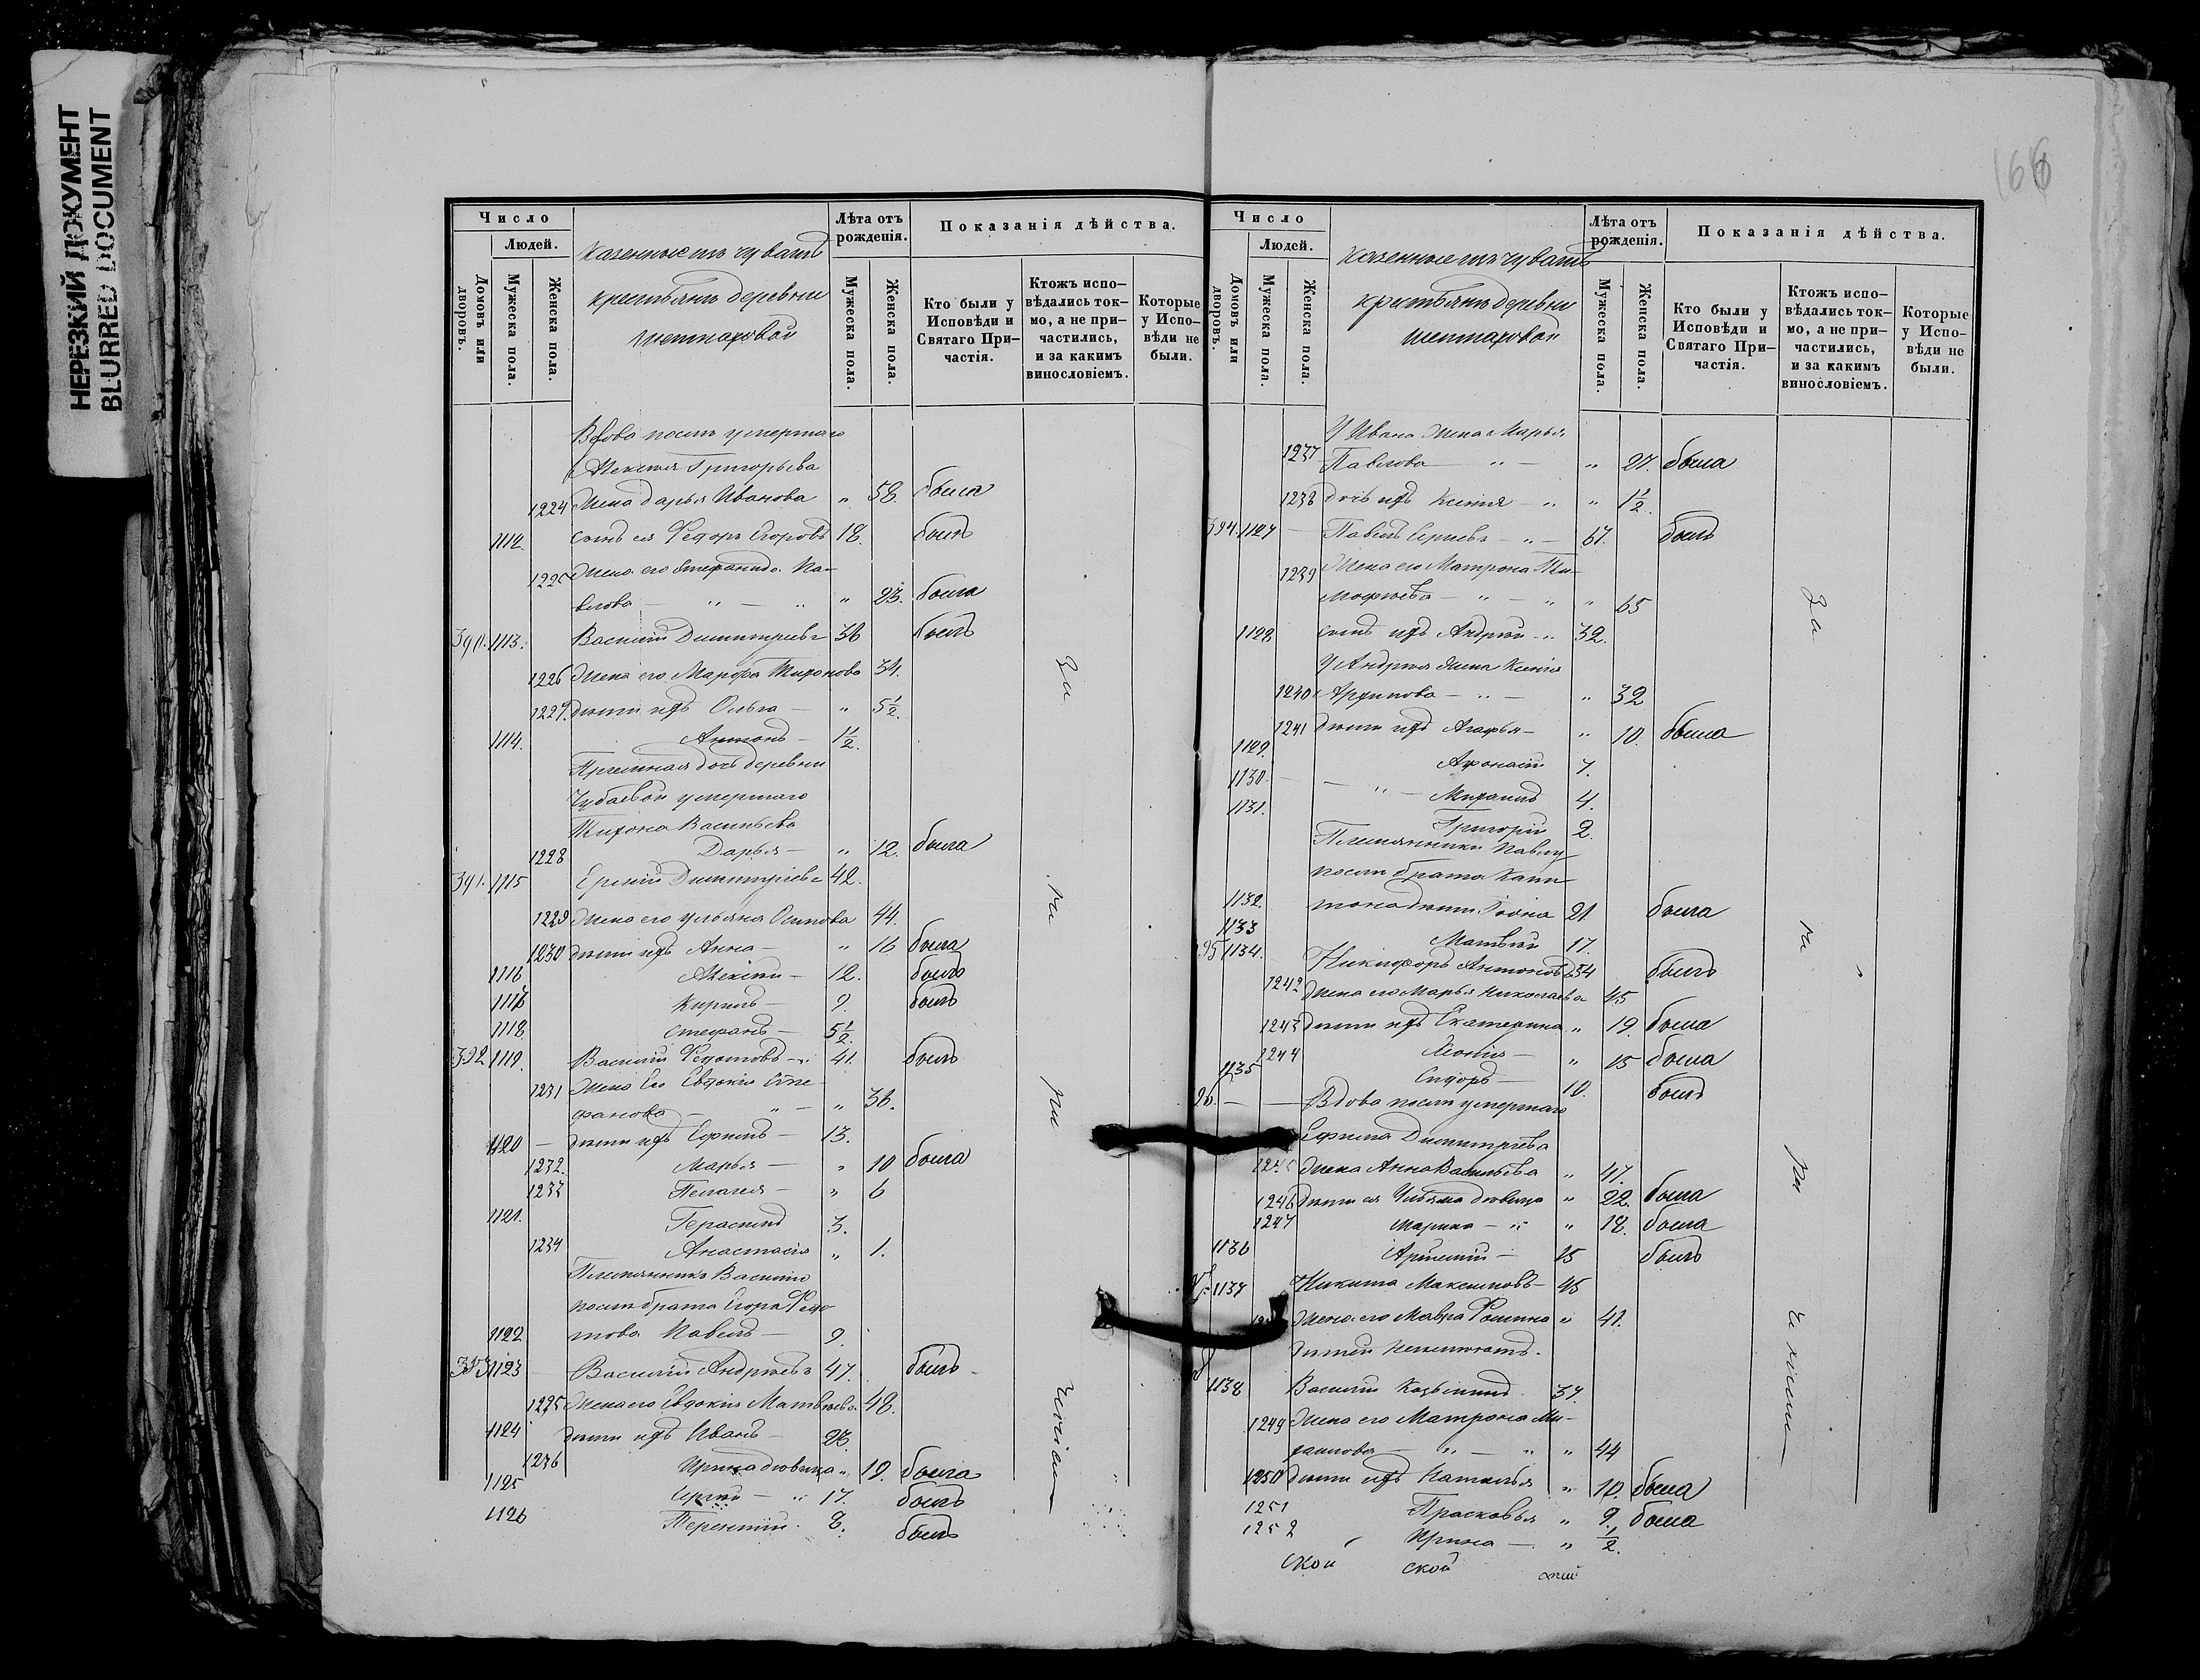 НЕРЕЗКИЙ ДОКУМЕНТ
BLURRED DOCUMENT
166
Число
Людей.
Домовъ или дворовъ.
Мужеска пола.
Женска пола.
Казенные изъ чувашъ
крестьянъ деревни
Шептаховой
Лѣта отъ рожденія.
Мужеска пола.
Женска пола.
Показанія дѣйства.
Кто были у Исповѣди и Святаго При-частія.
Ктожъ испо-вѣдались ток-мо, а не при-частились, и за какимъ винословіемъ.
Которые у Испо-вѣди не были.
Вдова послѣ умершаго
Алексѣя Григорьева
1224 жена Дарья Иванова " 58. была
1112. сынъ ея Ѳедоръ Егоровъ 18. былъ
1225 жена его Стефанида Па-
влова — " — " " 23. была
390. 1113. Василій Димитріевъ 36 былъ
1226 жена его Марфа Тихонова 34.
1227. дѣти ихъ Ольга — " 5½.
1114. Антонъ — 1½.
Пріемная дочь деревни
Чубаевой умершаго
Тихона Васильева
1228 Дарья — " 12. была
391. 1115 Ермій Димитріевъ 42.
1229 жена его Ульяна Осипова 44.
1230 дѣти ихъ Анна — " 16 была
1116 Алексѣй — 12. былъ
1117 Кирилъ — 9. былъ
1118 Стефанъ — 5½.
392 1119. Василій Ѳедотовъ — " 41. былъ
1231 жена Его Евдокія Сте-
фанова — " — " 36.
1120 — дѣти ихъ Ефимъ — 13.
1232. Марья — " 10 была
1233 Пелагея — " 6
1121. Герасимъ 3.
1234 Анастасія " 1.
Племянникъ Василію
послѣ брата Егора Ѳедо-
1122 това Павелъ — 9.
393 1123 — Василій Андреевъ 47. былъ
1235 жена его Евдокія Матвѣева 48.
1124 дѣти ихъ Иванъ — 23.
1236 Ирина дѣвица " 19. была
1125 Сергѣй — " 17. былъ
1126 Терентій. 8. былъ
Число
Людей.
Домовъ или дворовъ.
Мужеска пола.
Женска пола.
Казенные изъ чувашъ
крестьянъ деревни
Шептаховой
Лѣта отъ рожденія.
Мужеска пола.
Женска пола.
Показанія дѣйства.
Кто были у Исповѣди и Святаго При-частія.
Ктожъ испо-вѣдались ток-мо, а не при-частились, и за какимъ винословіемъ.
Которые у Испо-вѣди не были.
У Ивана жена Марья
1237 Павлова " — " 27. была
1238 дочь ихъ Ксенія — " " 1½.
394. 1127 — Павелъ Сергѣевъ — " — 67. былъ
1239 жена его Матрона Ти-
мофѣева — " — " " 65
1128 сынъ ихъ Андрей — " 32.
У Андрея жена Ксенія
1240 Архипова — " — " 32
1241 дѣти ихъ Агафья — " 10. была
1129. Афонасій 7.
1130 — " — Михаилъ 4.
1131. Григорій 2.
Племянники Павлу
послѣ брата Капи-
1132. тона дѣти Іона 21. была
1133 Матвѣй 17.
95 1134. Никифоръ Антоновъ 54 былъ
1242 жена его Марья Николаева 45
1243 дѣти ихъ Екатерина " 19. была
1244 Ксенія — " 15 была
1135 Сидоръ — 10. былъ
96. — — Вдова послѣ умершаго
Ефима Димитріева
1245 жена Анна Васильева " 47.
1246 дѣти ея дѣвица " 22. была
1247 Марина — " " 18. была
1136 Артемій — 15 былъ
1137 Никита Максимовъ — 45
жена его Мавра Фомина " 41.
дѣтей неимѣютъ.
1138 Василій Козьминъ 37.
1249 жена его Матрона Ми-
хаилова — " — " " 44
1250 дѣти ихъ Наталья " 10. была
1251 Прасковья " 9. была
1252 Ирина — " ½.
ской ской